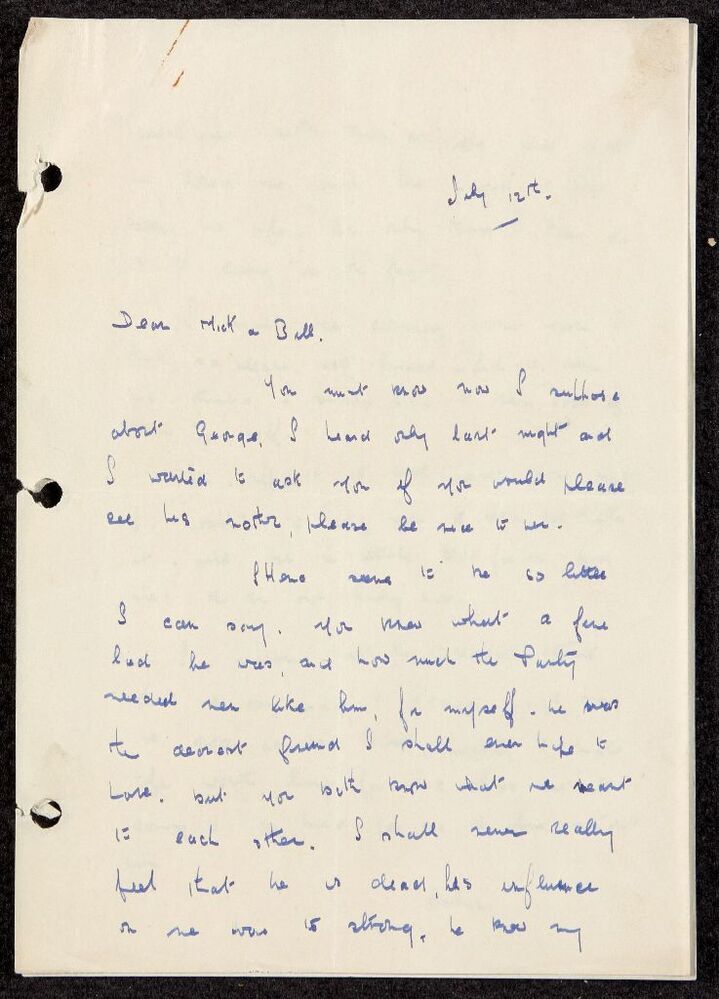 July 12th.
Dear Mick & Bill.
You must know now I suppose
about George, I heard only last night and
I wanted to ask you if you would please
see his mother, please be nice to her.
There seems to be so little
I can say. You knew what a fine
lad he was, and how much the Party
needed men like him, for myself - he was
the dearest friend I shall ever hope to
have. but you both know what we meant
to each other. I shall never really
feel that he is dead, his influence
on me was to strong, he knew my